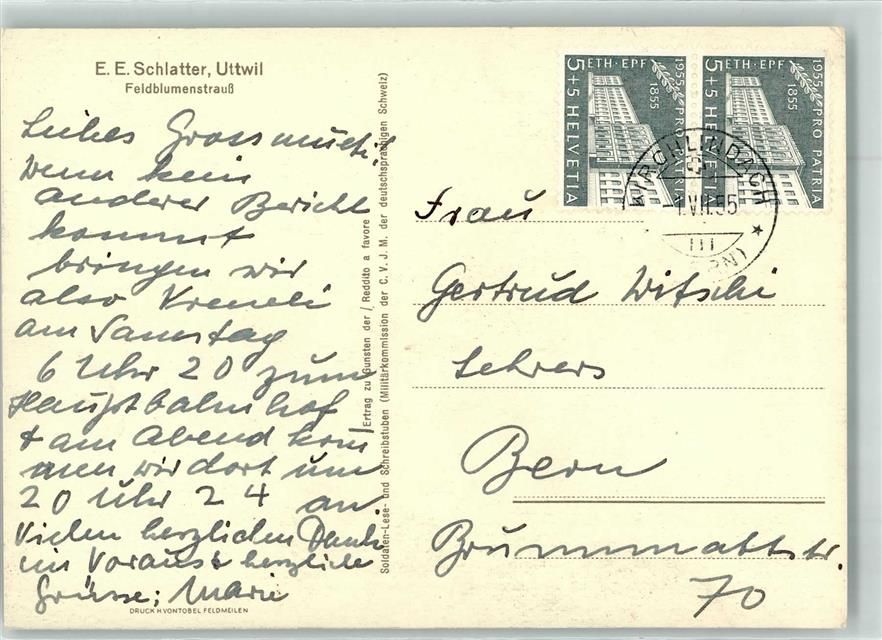 E. E. Schlatter, Uttwil
Feldblumenstrauß
Liebes Grossmuetti!
Wenn kein
anderer Bericht
kommt
bringen wir
also Vreneli
am Samstag
6 Uhr 20 zum
Hauptbahnhof
+ am Abend kom
men wir dort um
20 Uhr 24 an.
Vielen herzlichen Dank
im Voraus & herzliche
Grüsse; Marie
DRUCK H VONTOBEL FELDMEILEN
Ertrag zu Gunsten der / Reddito a favore
Soldaten-Lese- und Schreibstuben (Militärkommission der C. V. J. M. der deutschsprachigen Schweiz)
5+5 HELVETIA
ETH · EPF
1955 PRO PATRIA
1855
5+5 HELVETIA
ETH · EPF
1955 PRO PATRIA
1855
KIRCHLINDACH
VII.55
Frau
Gertrud Witschi
Lehrers
Bern
Brunnmattstr.
70